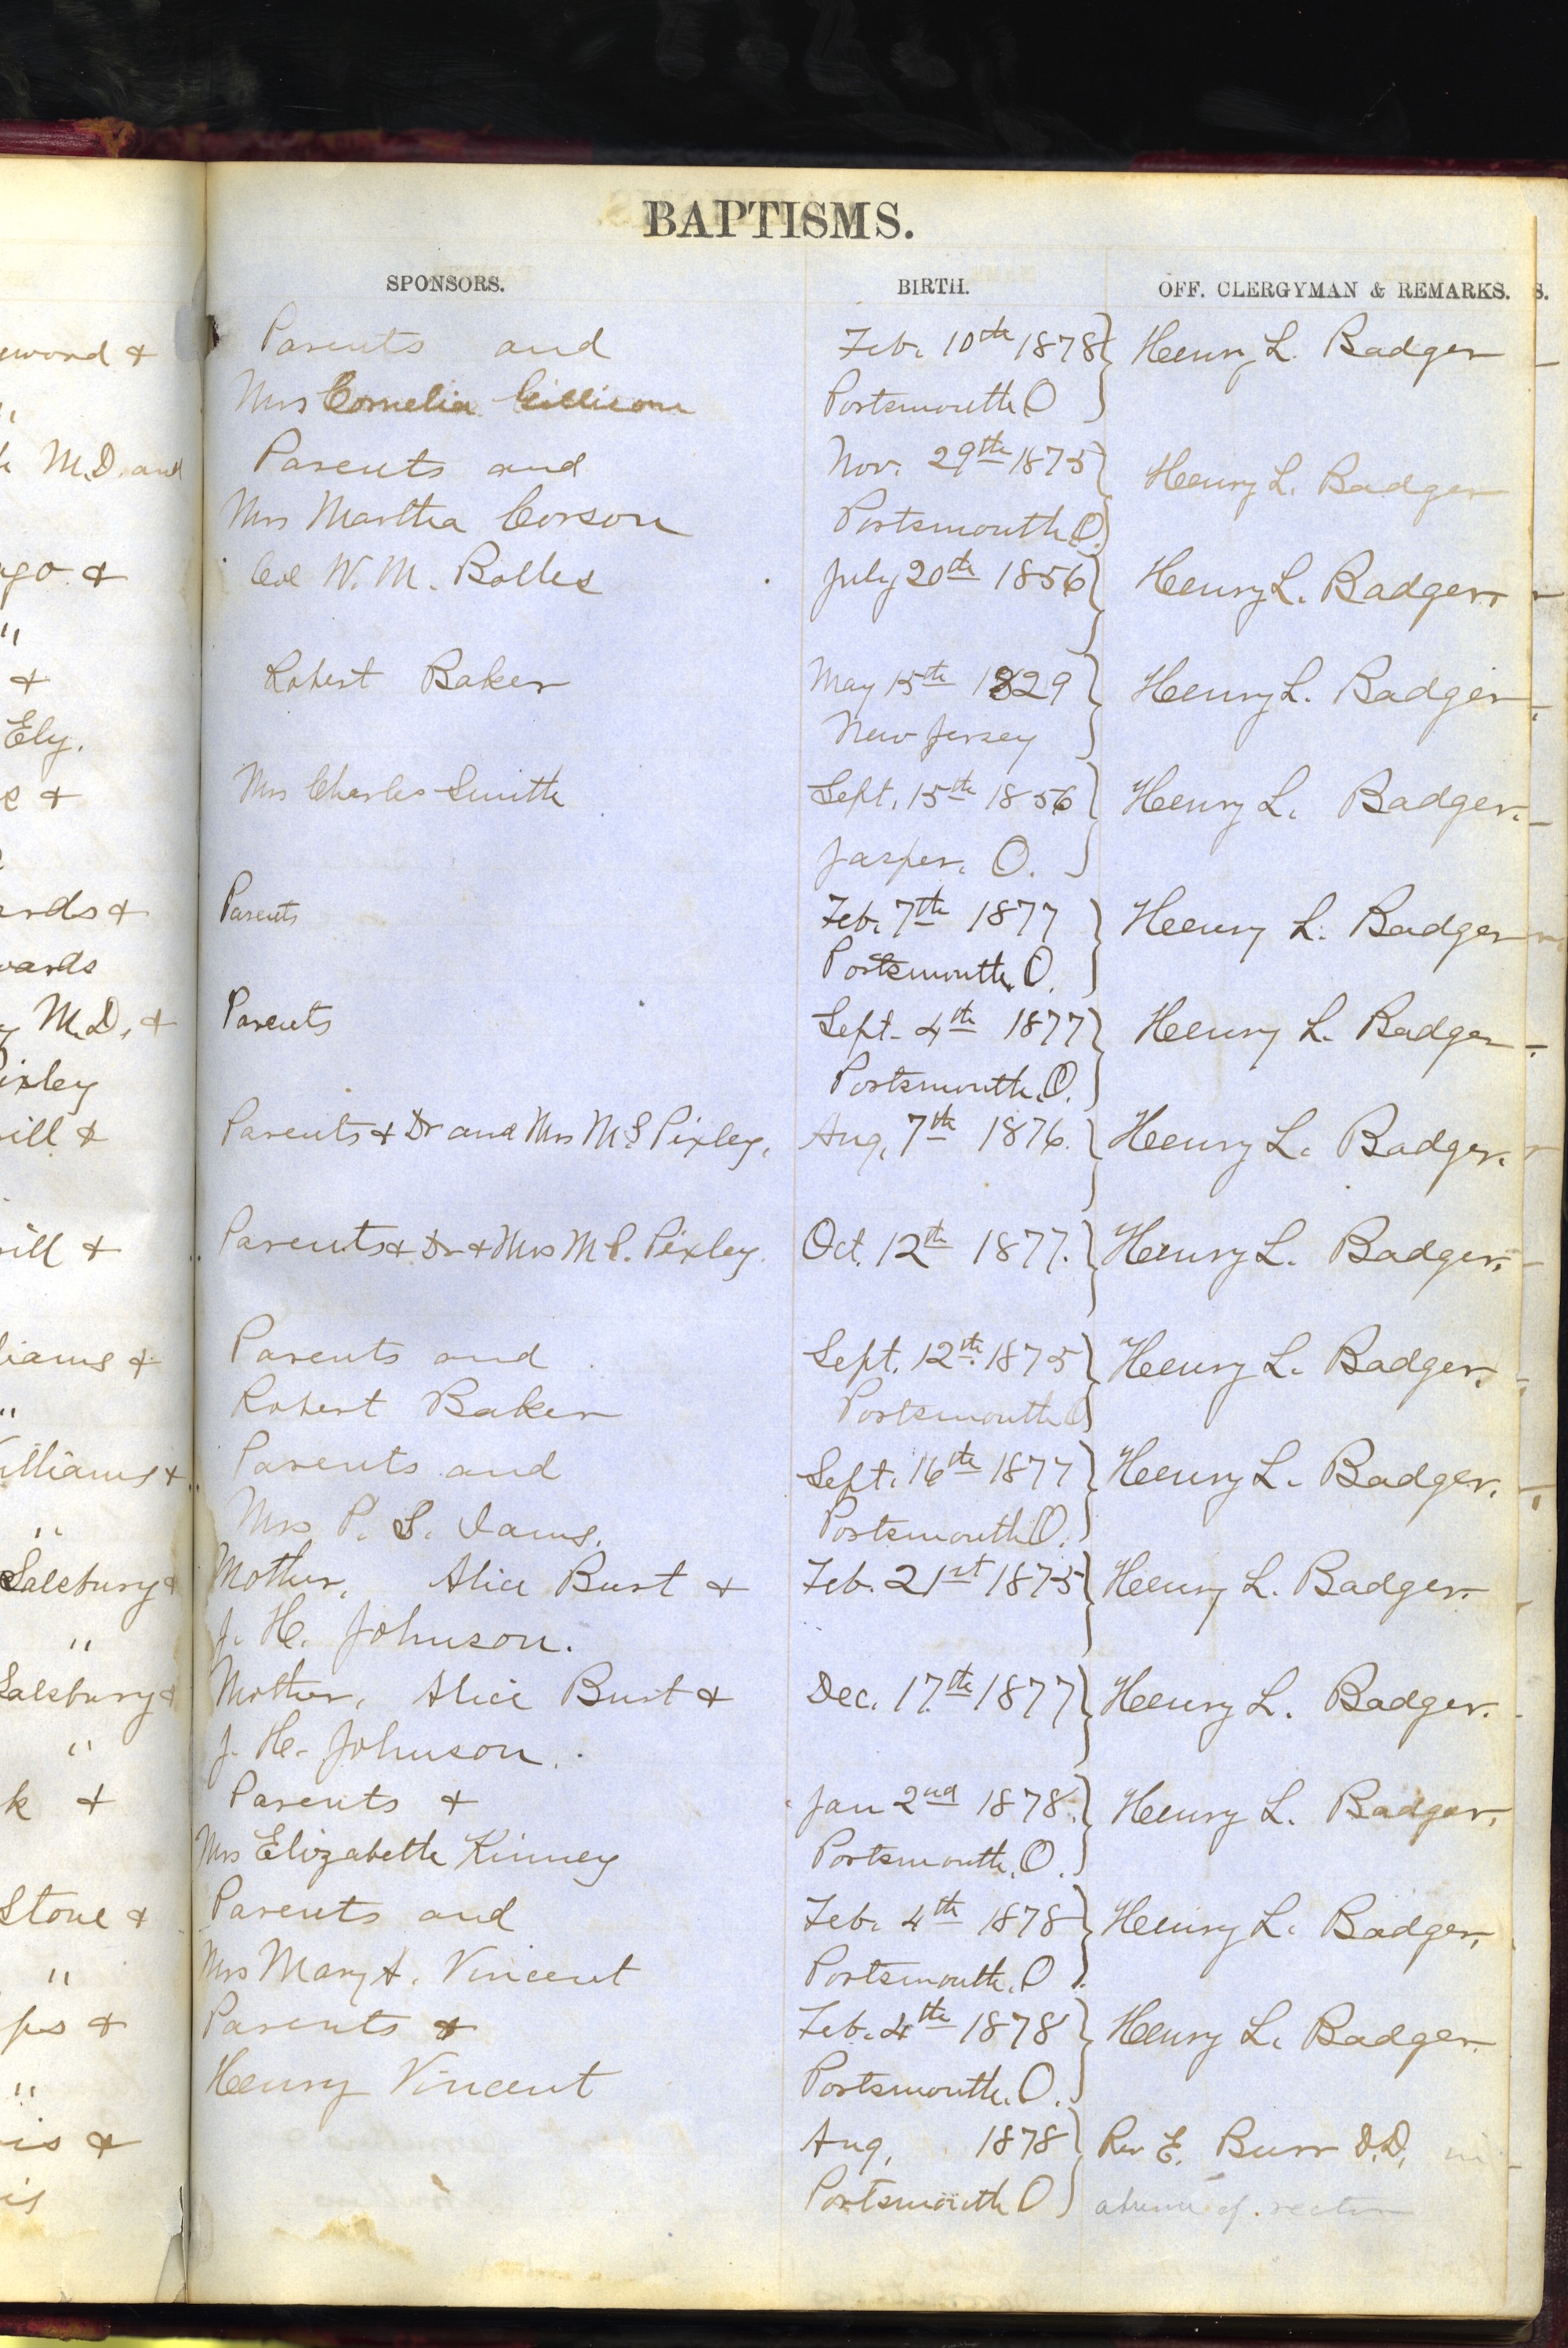 BAPTISMS.
SPONSORS. BIRTH. OFF. CLERGYMAN & REMARKS. S.
Parents and Feb. 10th 1878 Henry L. Badger
Mrs Cornelia Portsmouth O
M.D. and Parents and Nov. 29th 1875 Henry L. Badger
Mrs Martha Corson Portsmouth O.
& Col W. M. Bolles July 20th 1856 Henry L. Badger.
"
& Robert Baker May 15th 1829 Henry L. Badger
Ely. New Jersey
& Mrs Charles Smith Sept. 15th 1856 Henry L. Badger.
Jasper. O.
ards & Parents Feb. 7th 1877 Henry L. Badger
wards Portsmouth, O.
M.D. & Parents Sept. 4th 1877 Henry L. Badger
ixley Portsmouth, O.
ill & Parents & Dr and Mrs M S Pixley, Aug. 7th 1876. Henry L. Badger.
ill & Parents & Dr & Mrs M. P. Pixley. Oct. 12th 1877. Henry L. Badger.
liams & Parents and Sept. 12th 1875 Henry L. Badger.
" Robert Baker Portsmouth O
illiams & Parents and Sept. 16th 1877 Henry L. Badger.
" Mrs P. S. Iams. Portsmouth O.
Salsbury & Mother, Alice Burt & Feb. 21st 1875 Henry L. Badger.
" J. H. Johnson.
Salsbury & Mother, Alice Burt & Dec. 17th 1877 Henry L. Badger.
" J. H. Johnson.
k & Parents & Jan 2nd 1878. Henry L. Badger.
Mrs Elizabeth Kinney Portsmouth, O.
Stone & Parents and Feb. 4th 1878 Henry L. Badger.
" Mrs Mary A. Vincent Portsmouth, O.
ps & Parents & Feb. 4th 1878 Henry L. Badger.
" Henry Vincent Portsmouth, O.
is & Aug, 1878 Rev E. Burr D.D. in
is Portsmouth O absence of rector